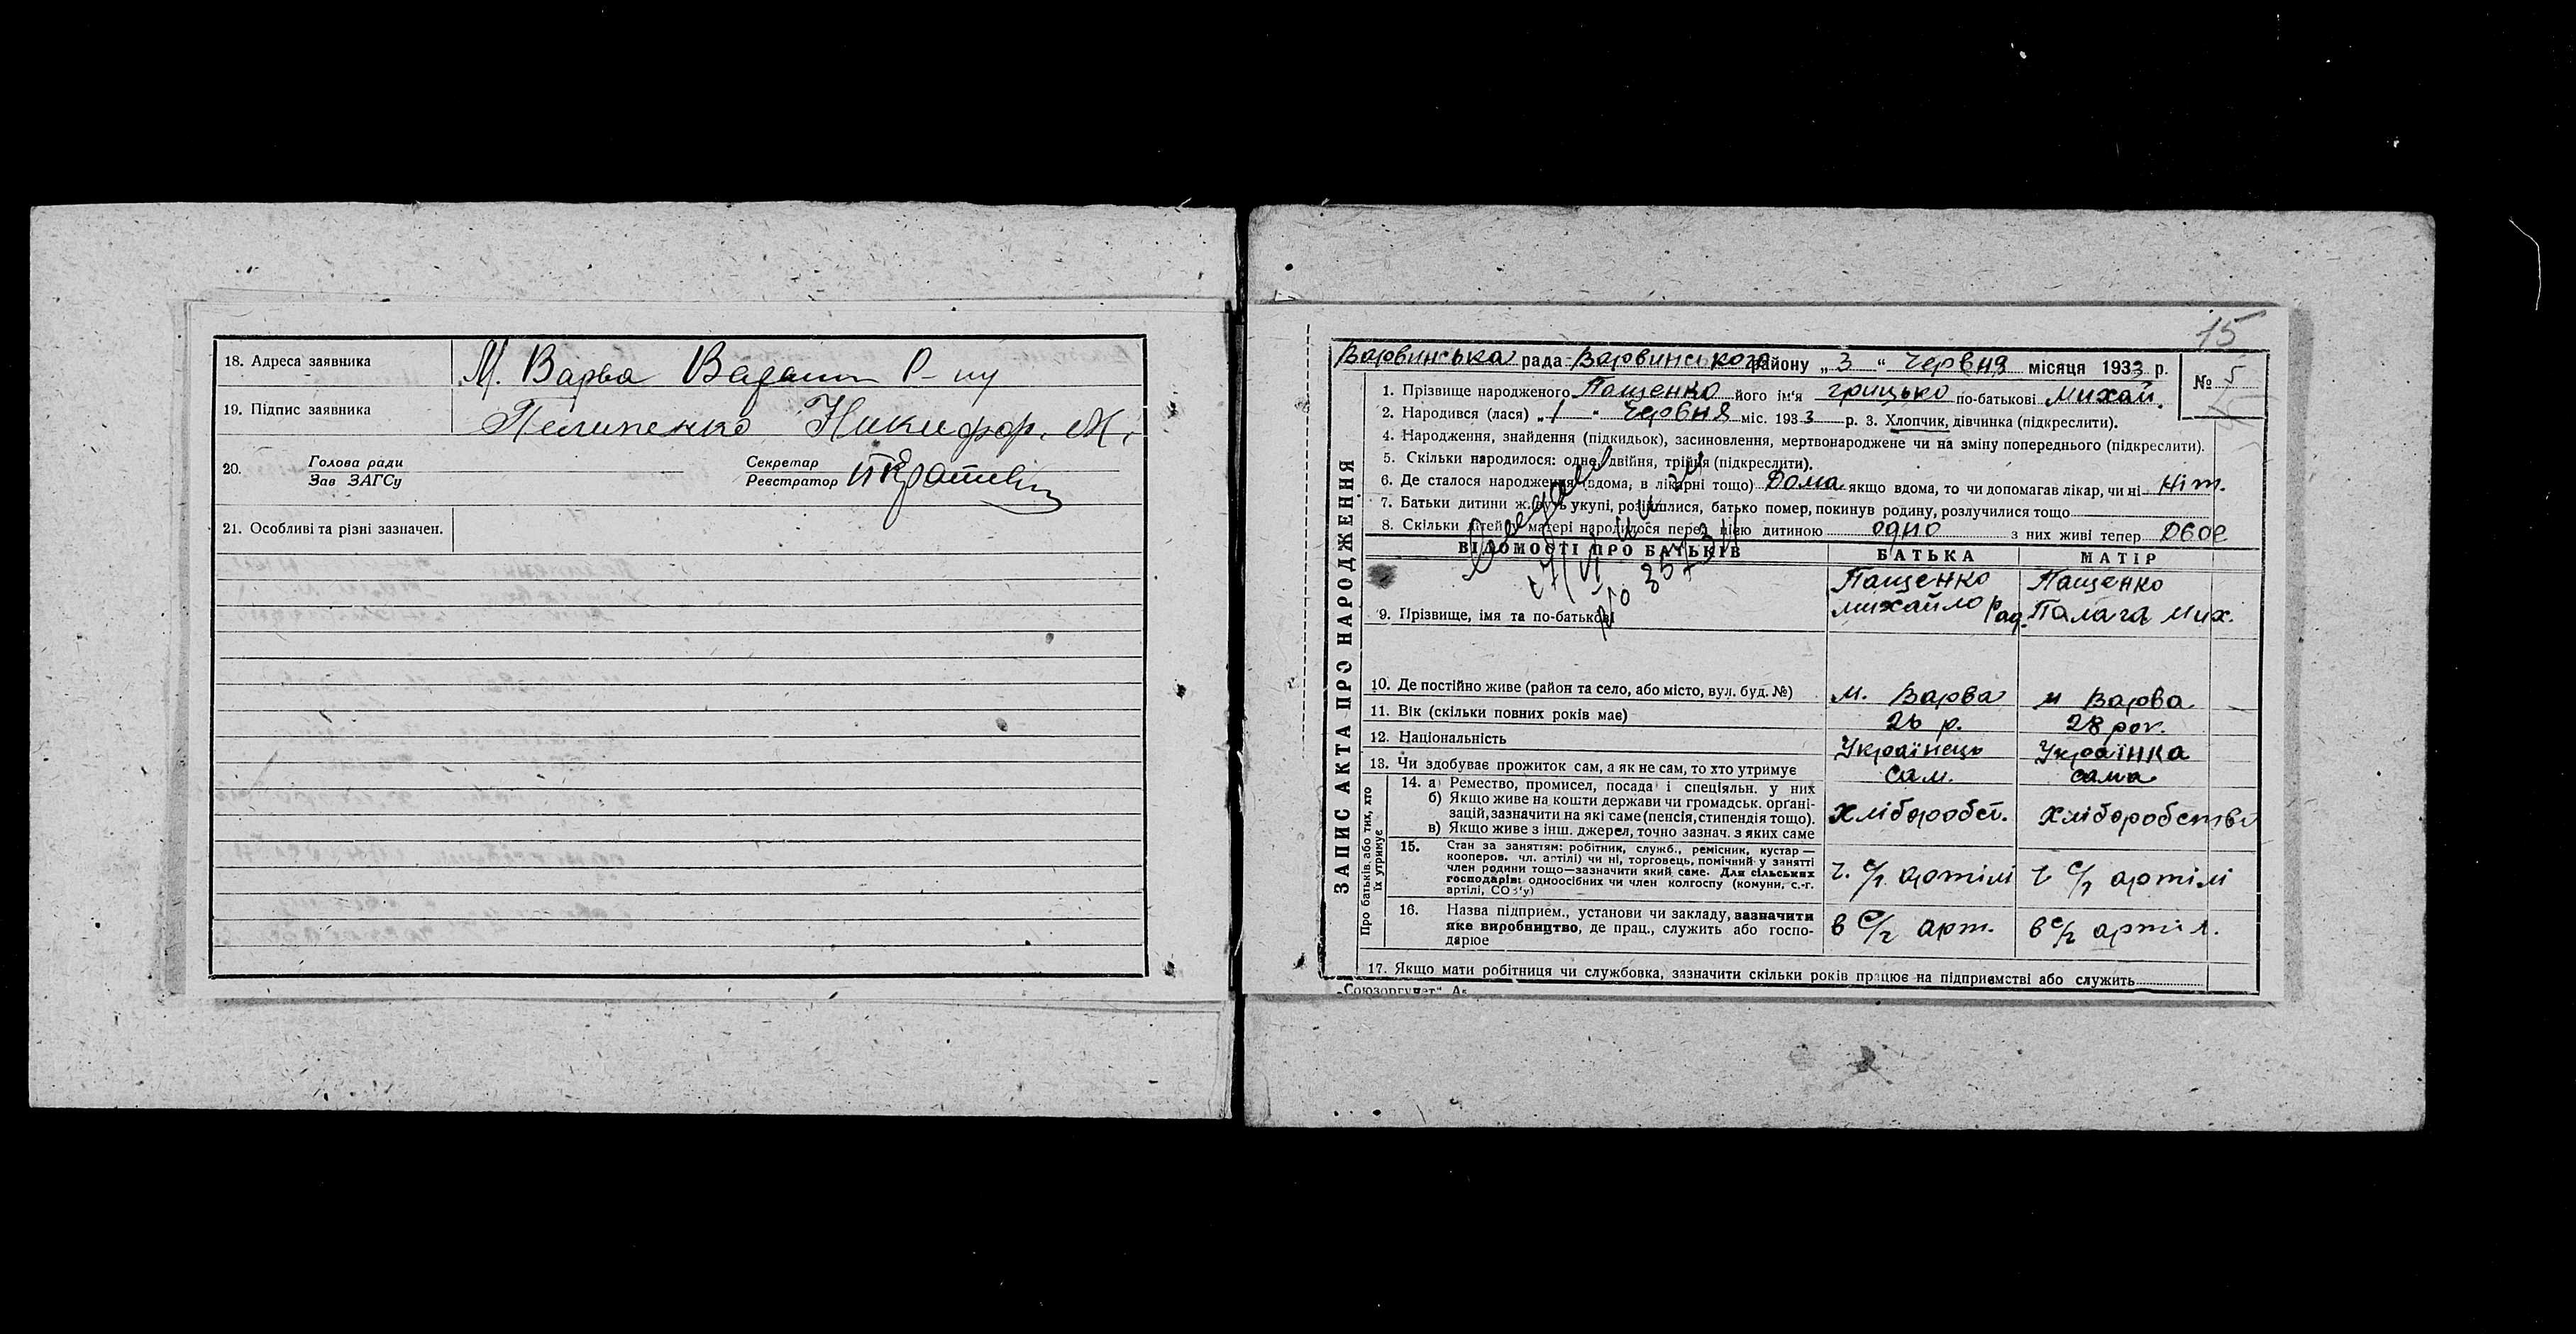 18. Адреса заявника М. Варва Р-ну
19. Підпис заявника Пелипенко Никифор. М.
20. Голова ради
Зав ЗАГСу
Секретар
Реєстратор
21. Особливі та різні зазначен.
15
ЗАПИС АКТА ПРО НАРОДЖЕННЯ
Варвинська рада Варвинського району „3“ Червня місяця 1933 р.
№ 5
1. Прізвище народженого Пащенко його ім'я Грицько по-батькові Михай.
2. Народився (лася) „1“ Червня міс. 1933 р. 3. Хлопчик, дівчинка (підкреслити).
4. Народження, знайдення (підкидьок), засиновлення, мертвонароджене чи на зміну попереднього (підкреслити).
5. Скільки народилося: одне, двійня, трійня (підкреслити).
6. Де сталося народження (вдома, в лікарні тощо) Дома якщо вдома, то чи допомагав лікар, чи ні Ніт.
7. Батьки дитини живуть укупі, розійшлися, батько помер, покинув родину, розлучилися тощо
8. Скільки дітей у матері народилося перед цією дитиною одно з них живі тепер Двое
ВІДОМОСТІ ПРО БАТЬКІВ БАТЬКА МАТІР
Пащенко Пащенко
9. Прізвище, імя та по-батькові Михайло Рад. Палага Мих.
10. Де постійно живе (район та село, або місто, вул. буд. №) м. Варва м Варва
11. Вік (скільки повних років має) 26 р. 28 рок.
12. Національність Українець Українка
13. Чи здобуває прожиток сам, а як не сам, то хто утримує сам. сама
Про батьків або тих, хто їх утримує
14. а) Ремество, промисел, посада і спеціяльн. у них
б) Якщо живе на кошти держави чи громадськ. орґані-
зацій, зазначити на які саме (пенсія, стипендія тощо). Хлібороб ст. Хліборобство
в) Якщо живе з інш. джерел, точно зазнач. з яких саме
15. Стан за заняттям: робітник, служб., ремісник, кустар —
кооперов. чл. артілі) чи ні, торговець, помічний у занятті
член родини тощо—зазначити який саме. Для сільських
господарів: одноосібних чи член колгоспу (комуни, с.-г.
артілі, СОЗ'у)
ч. с/г. артілі ч с/г артілі
16. Назва підприєм., установи чи закладу, зазначити
яке виробництво, де прац., служить або госпо-
дарює
в с/г арт. в с/г артіл.
17. Якщо мати робітниця чи службовка, зазначити скільки років працює на підприємстві або служить
„Союзоргучет“